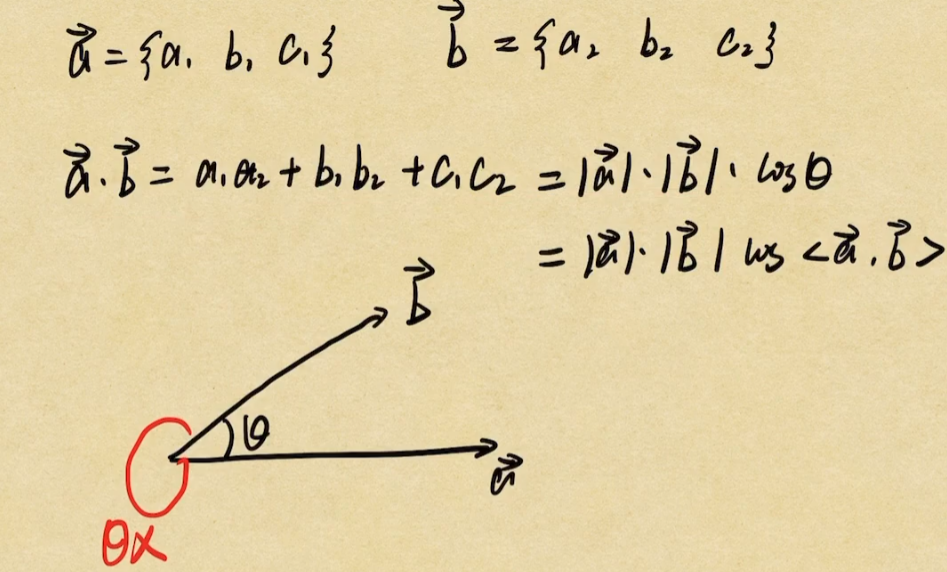 a⃗ = {a₁ b₁ c₁} b⃗ = {a₂ b₂ c₂}
a⃗ · b⃗ = a₁a₂ + b₁b₂ + c₁c₂ = |a⃗| · |b⃗| · cosθ
= |a⃗| · |b⃗| cos <a⃗ . b⃗>
b⃗
θ
a⃗
θx